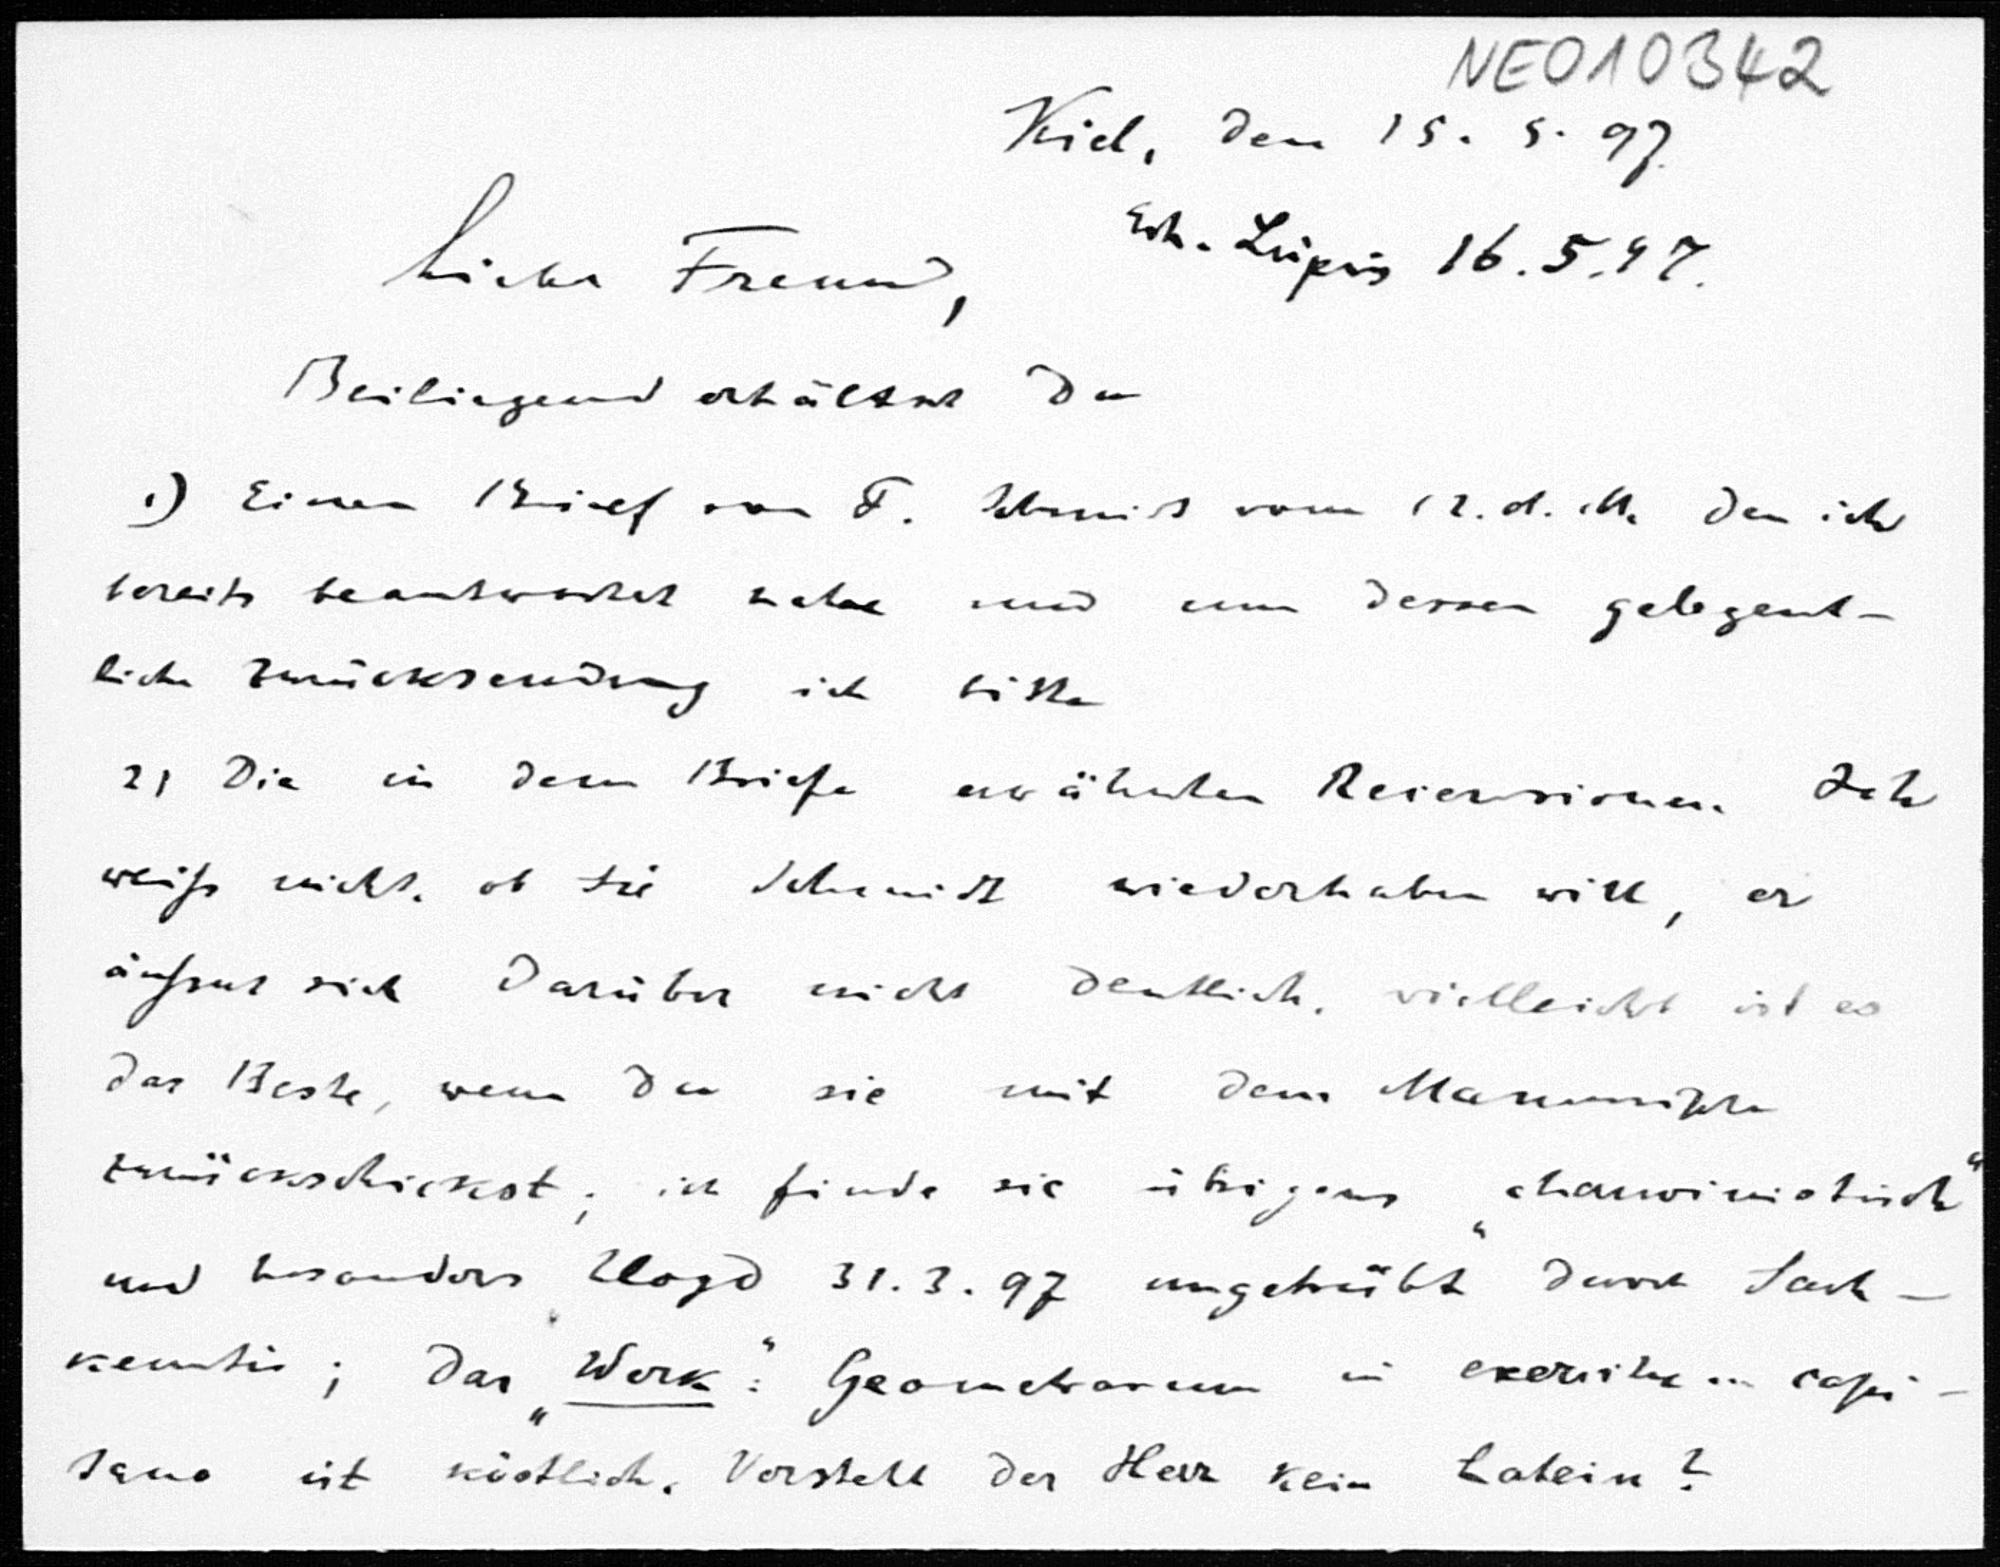 NE010342
Kiel, den 15. 5. 97.
Erh. Leipzig 16.5.97.
Lieber Freund,
Beiliegend erhältst Du
1) Einen Brief von F. Schmidt vom 12. d. M. den ich
bereits beantwortet habe und um dessen gelegent-
liche Zurücksendung ich bitte
2) Die in dem Briefe erwähnten Recensionen. Ich
weiß nicht, ob sie Schmidt wiederhaben will, er
äußert sich darüber nicht deutlich, vielleicht ist es
das Beste, wenn Du sie mit dem Manuscripte
zurückschickst; ich finde sie übrigens „chauvinistisch“
und besonders Lloyd 31.3.97 ungetrübt durch Sach-
kenntnis; das „Werk“: Geometrarum in exercitu capi-
tano ist köstlich. Versteht der Herr kein Latein?